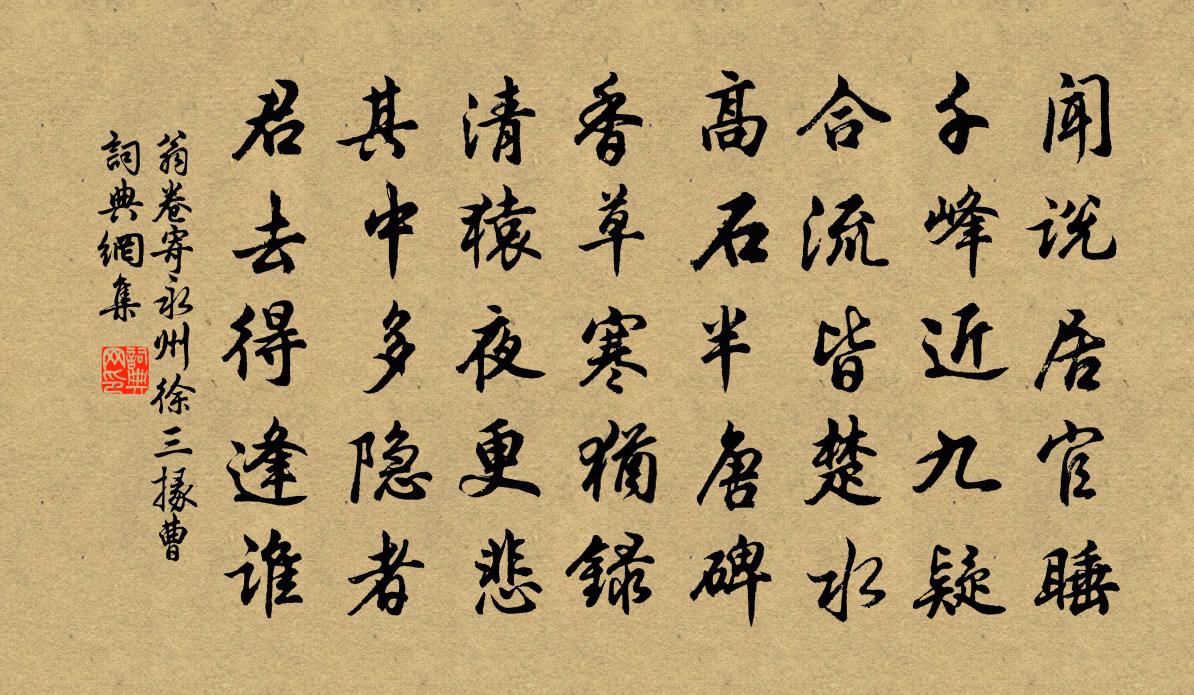 闻说居官睡
千峰近九疑
合流皆楚水
高石半唐碑
香草寒犹録
清猿夜更悲
其中多隐者
君去得逢谁
翁卷寄永州徐三掾曹
詞典網集
詞典网印